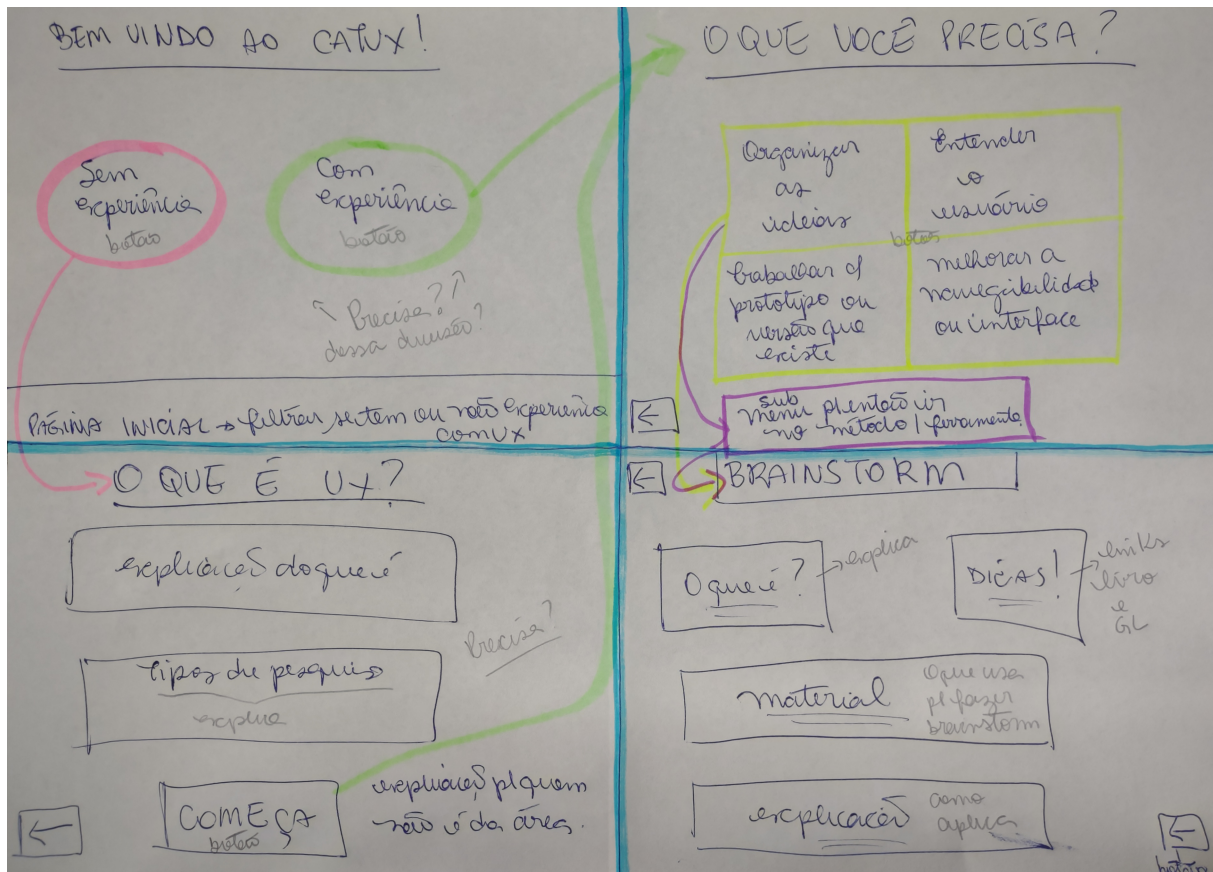 BEM VINDO AO CATUX!
Sem
experiência
botão
Com
experiência
botão
Precisa??
dessa divisão?
PÁGINA INICIAL → filtrar se tem ou não experiência
com UX
O QUE VOCÊ PRECISA?
Organizar
as
ideias
Entender
o
usuário
botões
trabalhar c/
protótipo ou
versão que
existe
melhorar a
navegabilidade
ou interface
←
sub
menu p/ então ir
no método / ferramenta
O QUE É UX?
explicação do que é
tipos de pesquisa
explica
Precisa?
COMEÇA
botão
explicação p/ quem
não é da área.
←
←
BRAINSTORM
O que é?
→ explica
DICAS!
→ links
livro
e
GL
material
O que usa
p/ fazer
brainstorm
explicação
como
aplica
←
botão